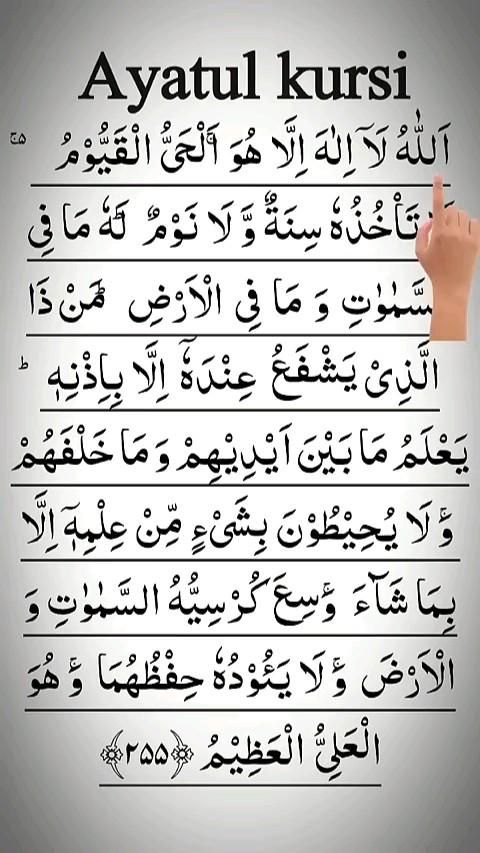 Ayatul kursi
اَللّٰهُ لَاۤ اِلٰهَ اِلَّا هُوَ ۚ اَلْحَیُّ الْقَیُّوْمُ ۵ۚ
تَاْخُذُهٗ سِنَةٌ وَّ لَا نَوْمٌ ؕ لَهٗ مَا فِی
السَّمٰوٰتِ وَ مَا فِی الْاَرْضِ ؕ مَنْ ذَا
الَّذِیْ یَشْفَعُ عِنْدَهٗۤ اِلَّا بِاِذْنِهٖ ؕ
یَعْلَمُ مَا بَیْنَ اَیْدِیْهِمْ وَ مَا خَلْفَهُمْ
وَ ۚ لَا یُحِیْطُوْنَ بِشَیْءٍ مِّنْ عِلْمِهٖۤ اِلَّا
بِمَا شَآءَ ۚ وَسِعَ كُرْسِیُّهُ السَّمٰوٰتِ وَ
الْاَرْضَ ۚ وَ لَا یَـُٔوْدُهٗ حِفْظُهُمَا ۚ وَ هُوَ
الْعَلِیُّ الْعَظِیْمُ ﴿۲۵۵﴾